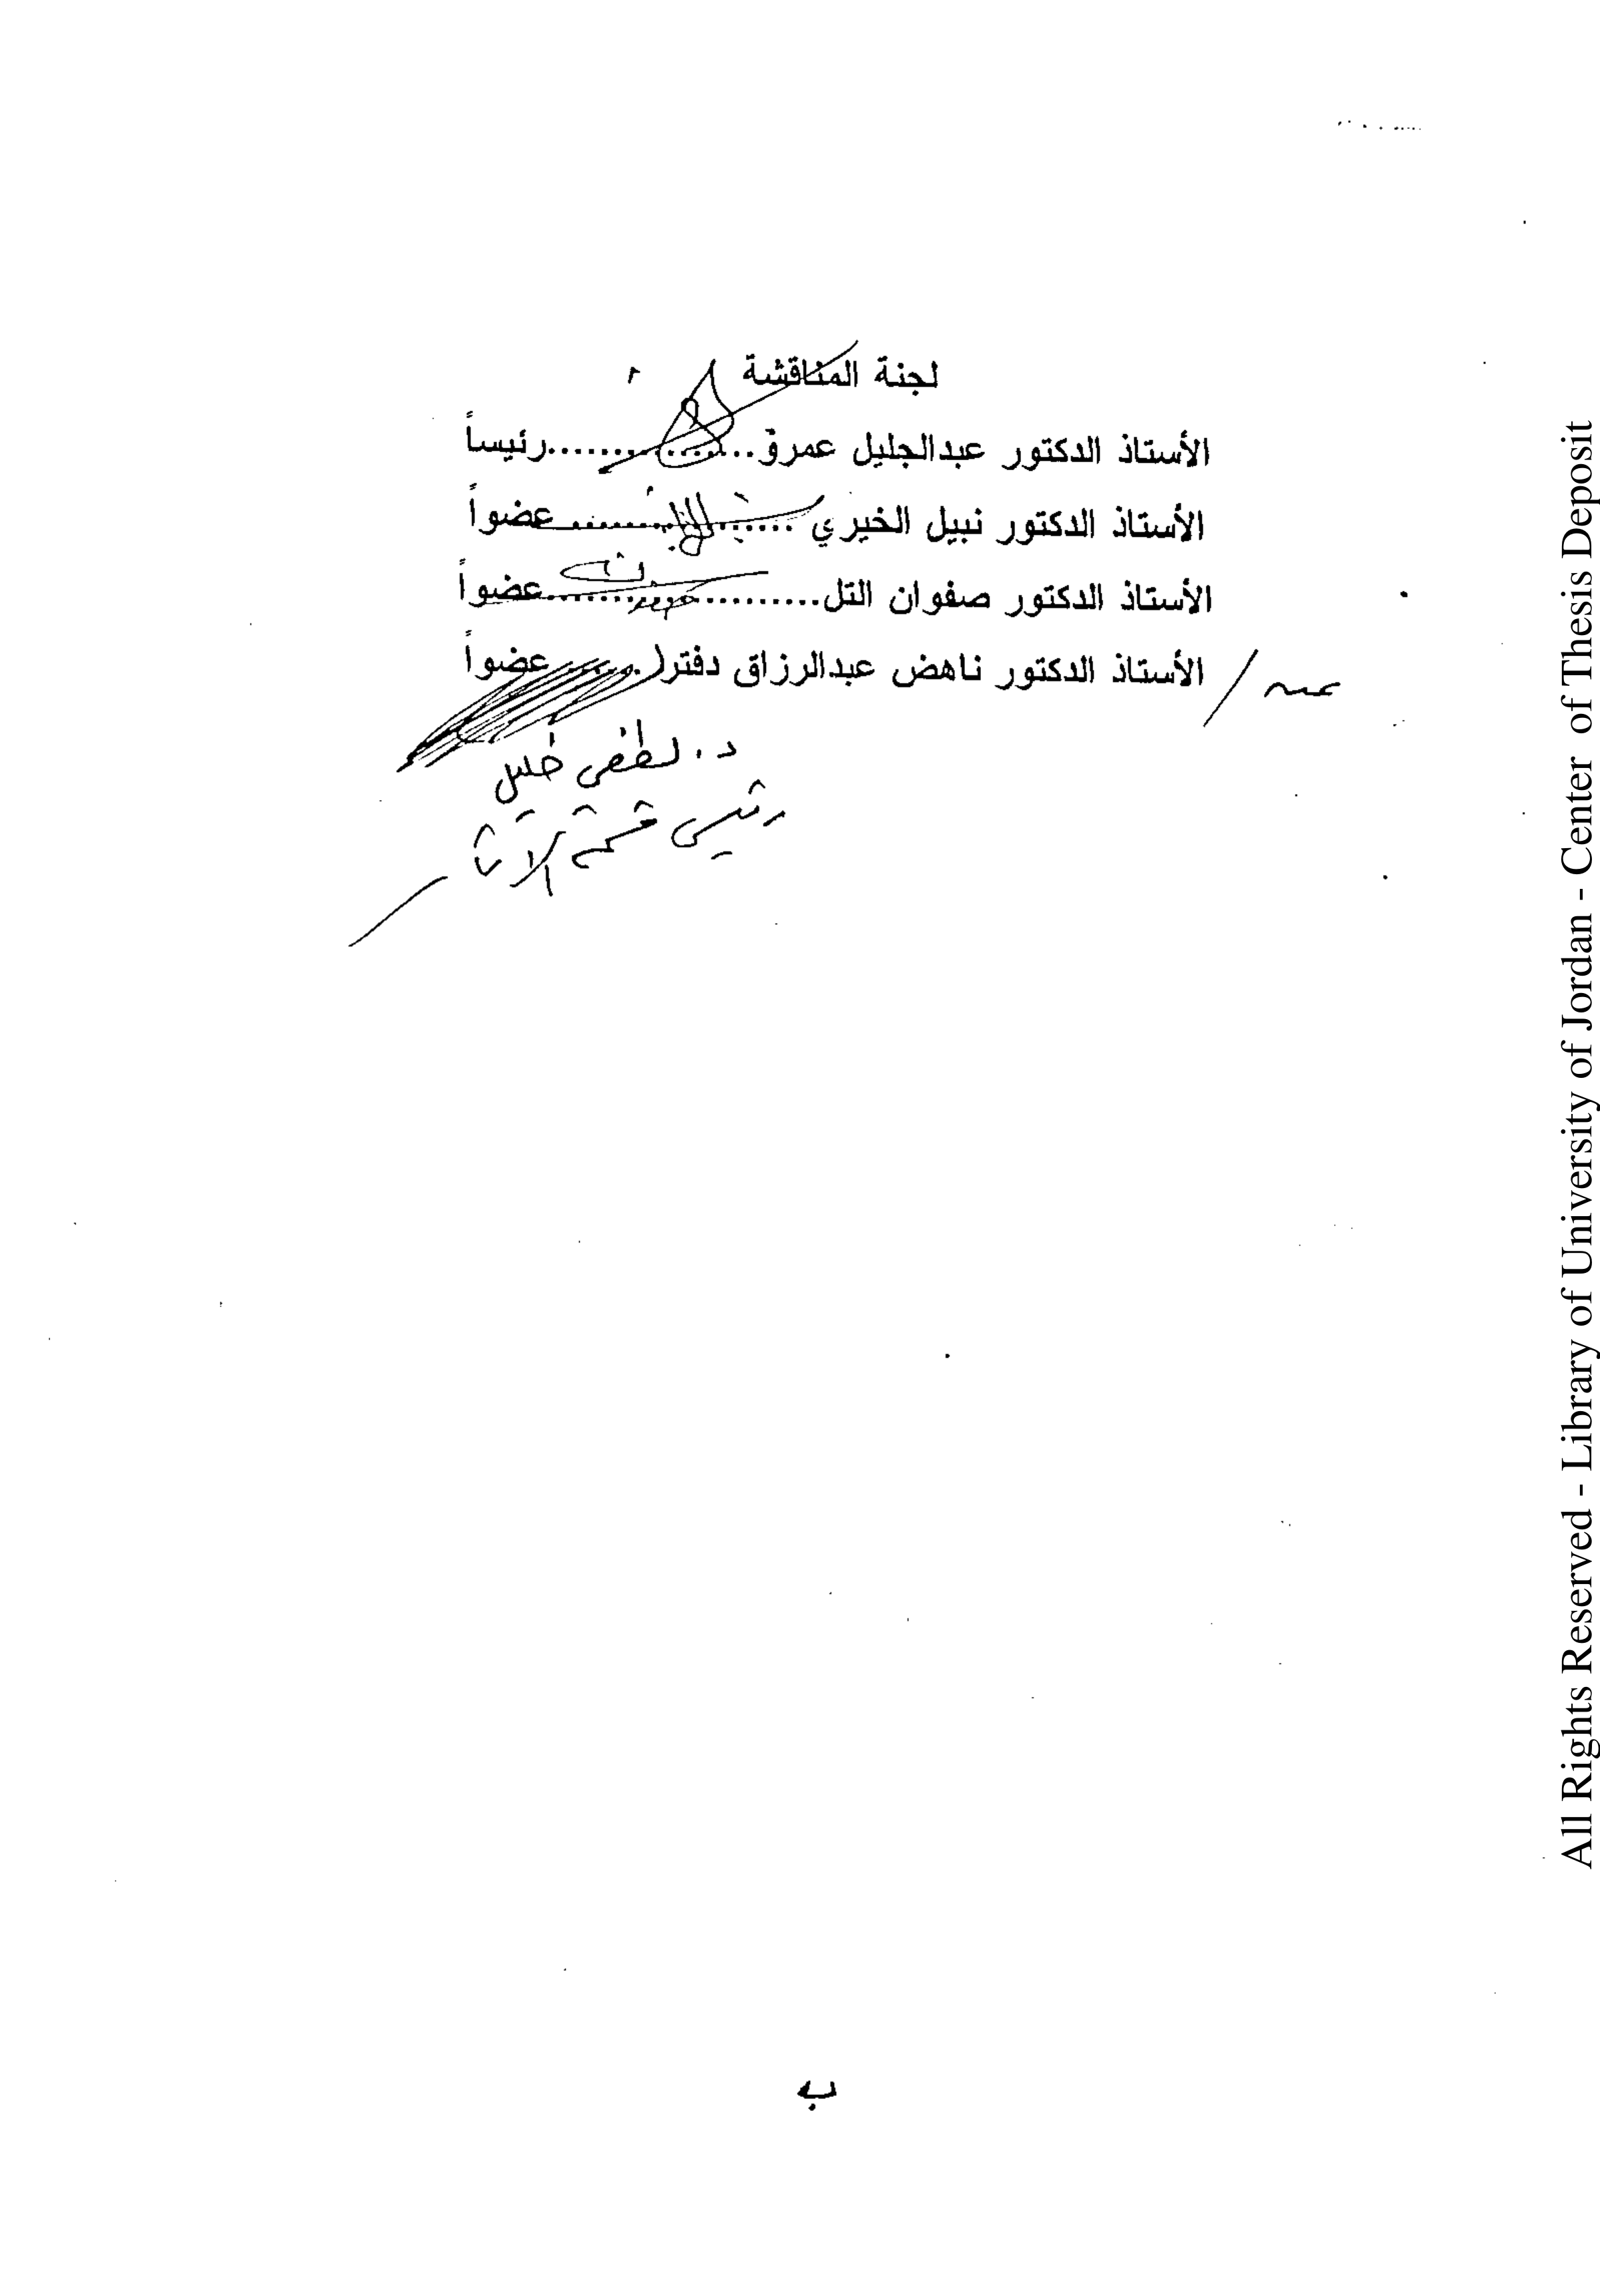 لجنة المناقشة
الأستاذ الدكتور عبدالجليل عمرو................رئيساً
الأستاذ الدكتور نبيل الخيري ..................عضواً
الأستاذ الدكتور صفوان التل.....................عضواً
عنه / الأستاذ الدكتور ناهض عبدالرزاق دفتر.......عضواً
د. لطفي خليل
رئيس قسم الآثار
ب
All Rights Reserved - Library of University of Jordan - Center of Thesis Deposit